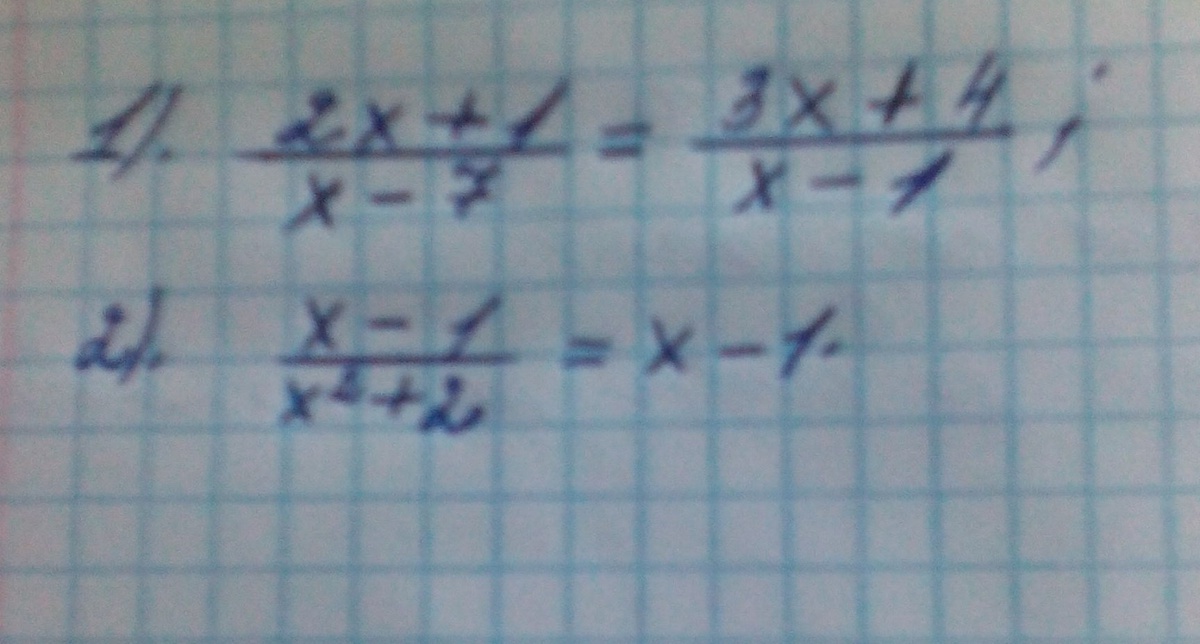 1). (2x+1)/(x-7) = (3x+4)/(x-1);
2). (x-1)/(x²+2) = x-1.